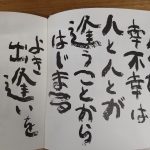 幸不幸は
人と人とが
逢うことから
はじまる
よき
出逢いを